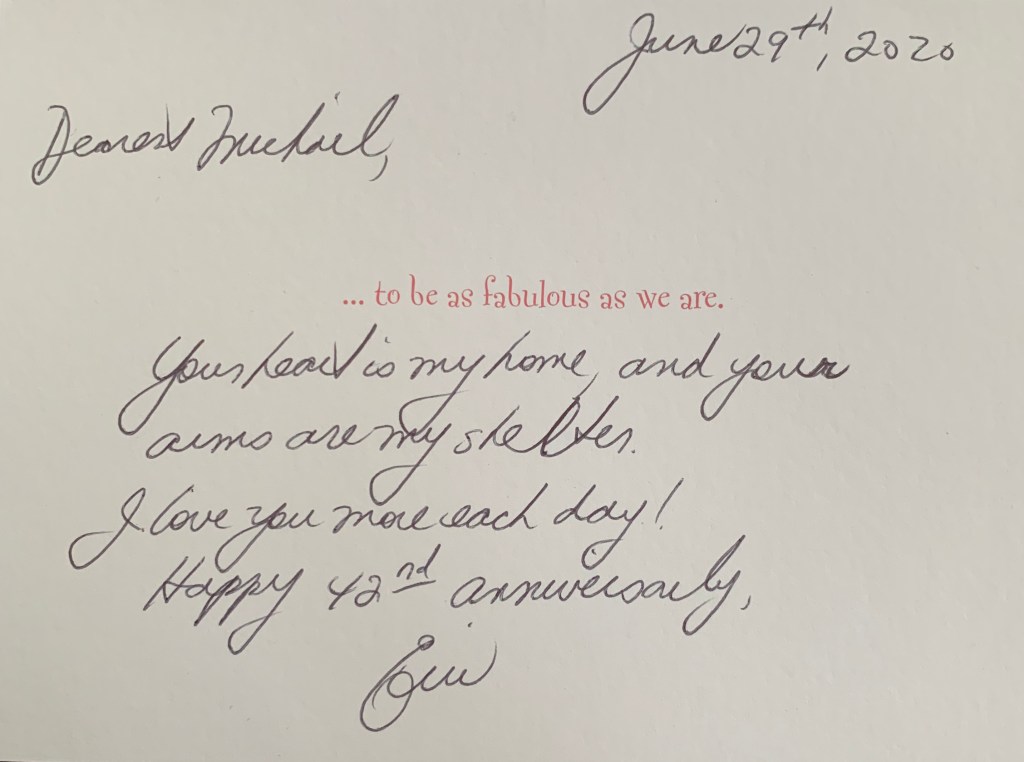 June 29th, 2020
Dearest Michael,
... to be as fabulous as we are.
Your heart is my home, and your
arms are my shelter.
I love you more each day!
Happy 42nd anniversary,